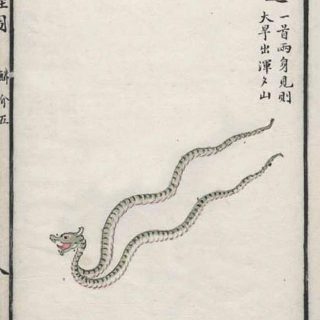 一首兩身見則
大旱出渾夕山
圖
鱗介五